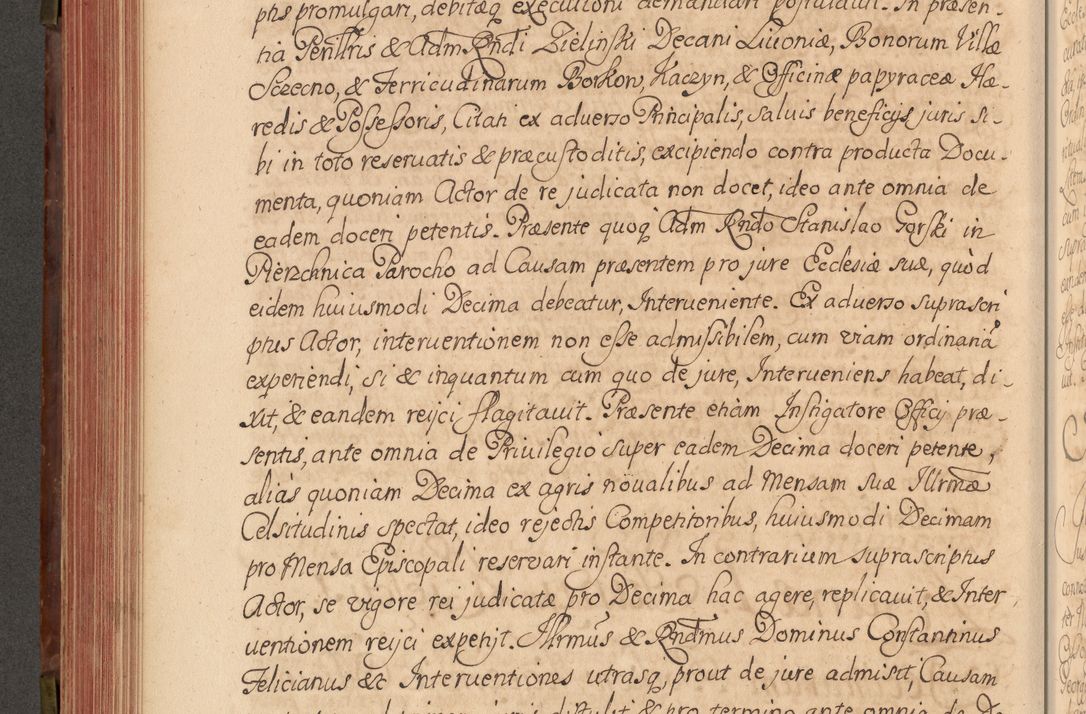 pts promulgari, debitæq̨ executioni demandari postulauit. In præsen-
tia Perillris & Adm Rndi Zielinſki Decani Liuoniæ, Bonorum Villæ
Sczecno, & Terricudinarum Borkow, Kaczyn, & Officinæ papyraceæ Hæ-
redis & Poſſeſſoris, Citati ex aduerso Principalis, saluis beneficijs juris si-
bi in toto reseruatis & præcuſtoditis, excipiendo contra producta Docu-
menta, quoniam Actor de re judicata non docet, ideo ante omnia de
eadem doceri petentis. Præsente quoq̨ Adm Rndo Stanislao Gorſki in
Pierzchnica Parocho ad Causam præsentem pro jure Ecclesiæ suæ, quòd
eidem huiusmodi Decima debeatur, Interueniente. Ex aduerso suprascri
ptus Actor, interuentionem non eſſe admiſſibilem, cum viam ordinariã
experiendi, si & inquantum cum quo de jure, Interueniens habeat, di-
xit, & eandem reijci flagitauit. Præsente etiam Inſtigatore Officij præ-
sentis, ante omnia de Priuilegio super eadem Decima doceri petente,
aliàs quoniam Decima ex agris noualibus ad Mensam suæ Illrmæ
Celsitudinis spectat, ideo rejectis Competitoribus, huiusmodi Decimam
pro Mensa Episcopali reservari inſtante. In contrarium suprascriptus
Actor, se vigore rei judicatæ pro Decima hac agere, replicauit, & Inter
uentionem reijci expetijt. Illrmus & Rndmus Dominus Conſtantinus
Felicianus &c Interuentiones utrasq̨, prout de jure admisit, Causam
distulit & pro termino ante omnia de De